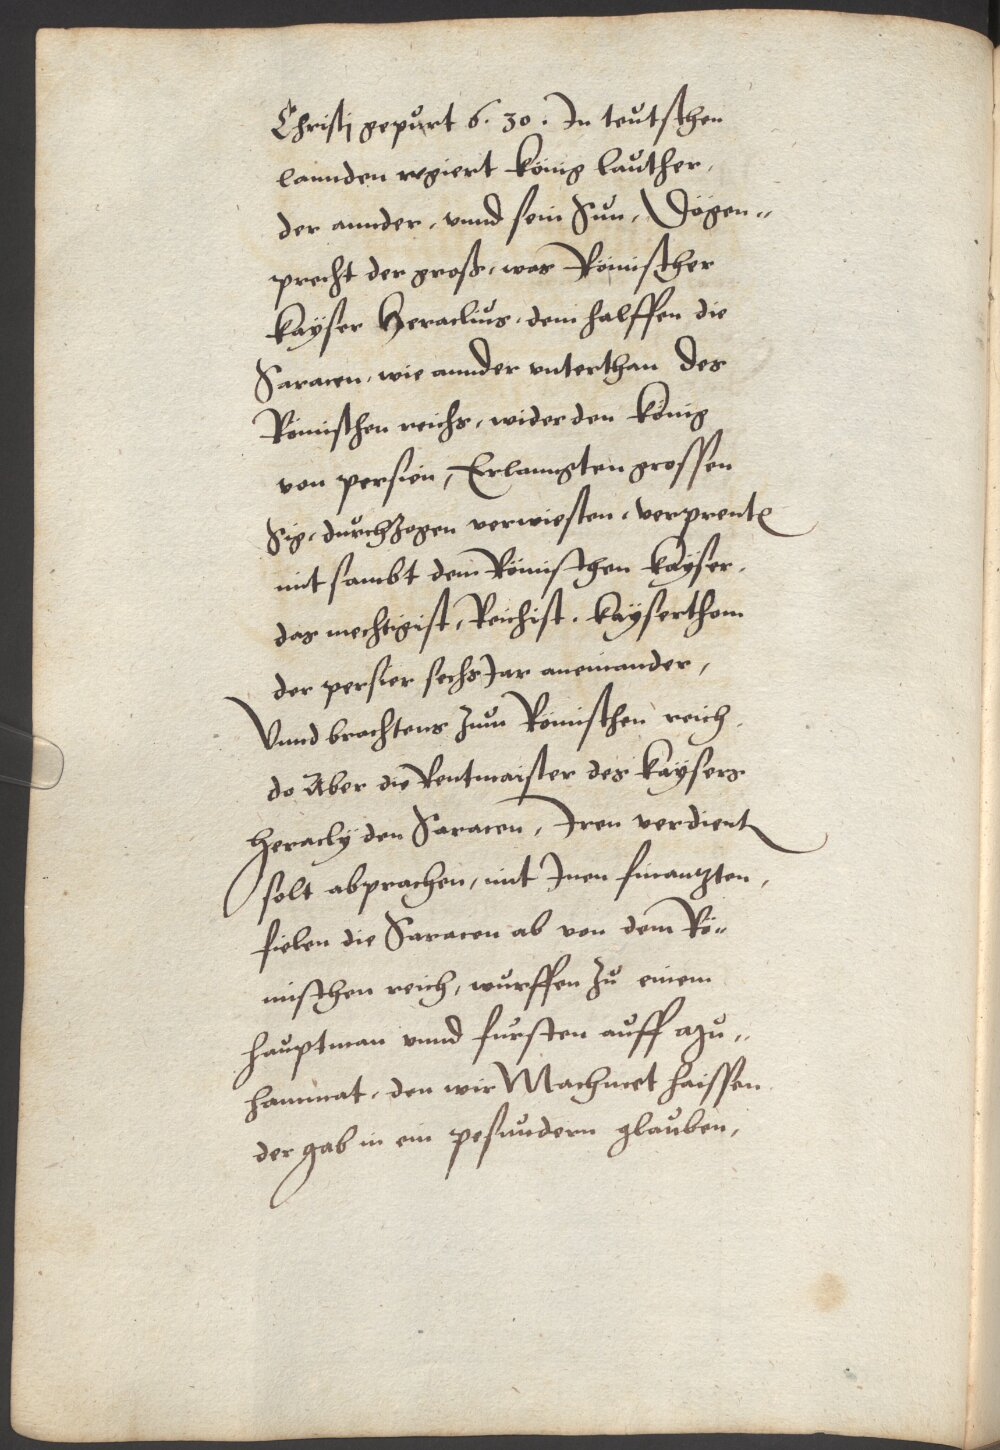 Christj gepurt 6. 30. In teutschen
lannden regiert König lauther,
der annder, vnnd sein Sun, Dögen„
precht der groß, was Römischer
kayser Heraclius, dem halffen die
Saracen, wie annder vnterthan des
Römischen reichs, wider den König
von persien, Erlanngten grossen
Sig, durchZogen verwiesten, verprenten
mit sambt dem Römischen Kayser,
das mechtigist, Reichist, Kayserthom
der persier sechs Jar aneinander,
Vnnd brachtens Zum Römischen reich
do Aber die Rentmaister des Kaysers
Heracly den Saracen, Iren verdienten
solt abprachen, mit Inen finantzten,
fielen die Saracen ab von dem Rö„
mischen reich, wurffen Zu einem
hauptman vnnd fursten auff
hammat, den wir Machmet haissen
der gab in ein pesundern glauben,